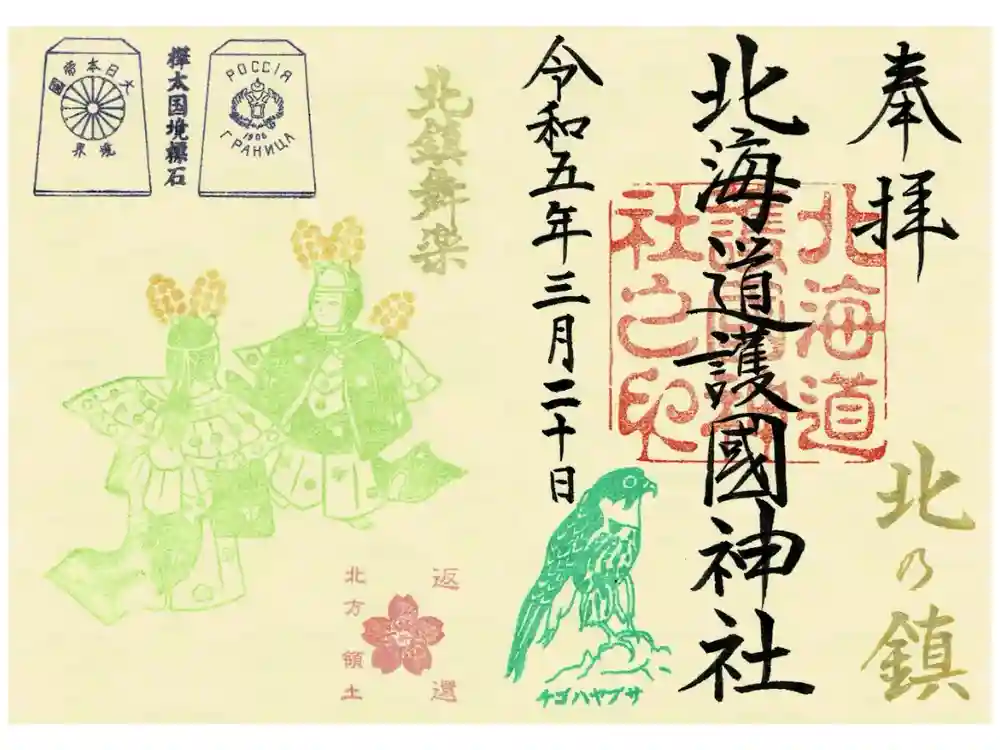 奉拝
北海道
護國神
社之印
北の鎮
北海道護國神社
令和五年三月二十日
チゴハヤブサ
北鎮舞楽
返還
北方領土
РОССІЯ
1906
ГРАНИЦА
樺太国境標石
大日本帝國
境界